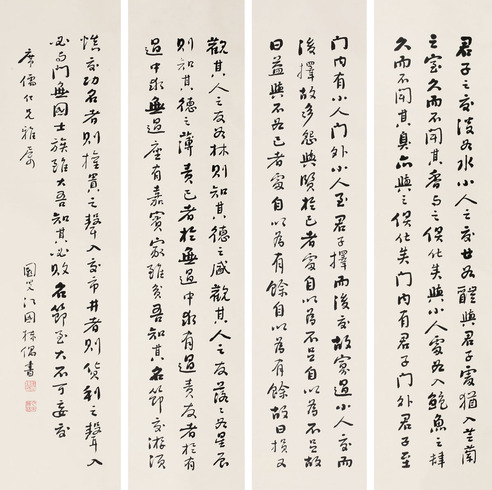 君子之交淡如水小人之交甘如醴與君子處猶入芝蘭
之室久而不聞其香與之俱化矣與小人處如入鮑魚之肆
久而不聞其臭亦與之俱化矣門内有君子門外君子至
門内有小人門外小人至君子擇而後交故寡過小人交而
後擇故多怨與賢於己者處自以為不足自以為不足故
日益與不如己者處自以為有餘自以為有餘故日損又
觀其人之友如林則知其德之盛觀其人之友落落如星辰
則知其德之薄責己者於無過中求有過責友者於有
過中求無過座有嘉賓家雖貧吾知其名節交游須
慎交功名者則權貴之聲入交市井者則貨利之聲入
必與門無國士族雖大吾知其必敗名節至大不可妄交
席儒仁兄雅屬
江國棟偶書